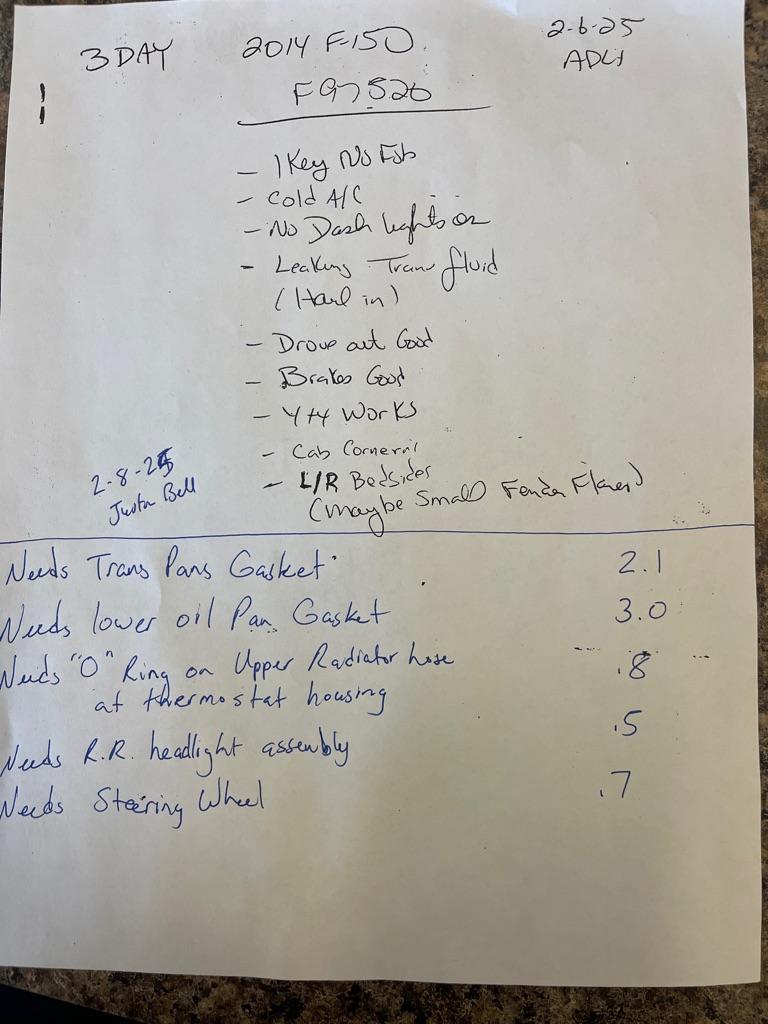 3 DAY 2014 F-150 2-6-25
F97520
- 1 Key No Fob
- Cold A/C
- No Dash lights on
- Leaking Trans fluid
(Haul in)
- Drove out Good
- Brakes Good
- 4x4 Works
- Cab Corners
2-8-25
Justin Bell
- L/R Bedsides
(Maybe Small Fender Flares)
Needs Trans Pans Gasket 2.1
Needs lower oil Pan Gasket 3.0
Needs "O" Ring on Upper Radiator hose .8
at thermostat housing
Needs R.R. headlight assembly .5
Needs Steering Wheel .7